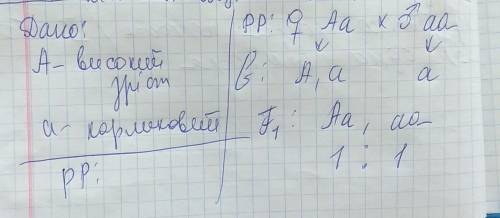 Дано:
А- високий
зріст
а- карликовий
РР:
РР: ♀ Аа × ♂ аа
G: А, а а
F₁: Аа, аа
1 : 1